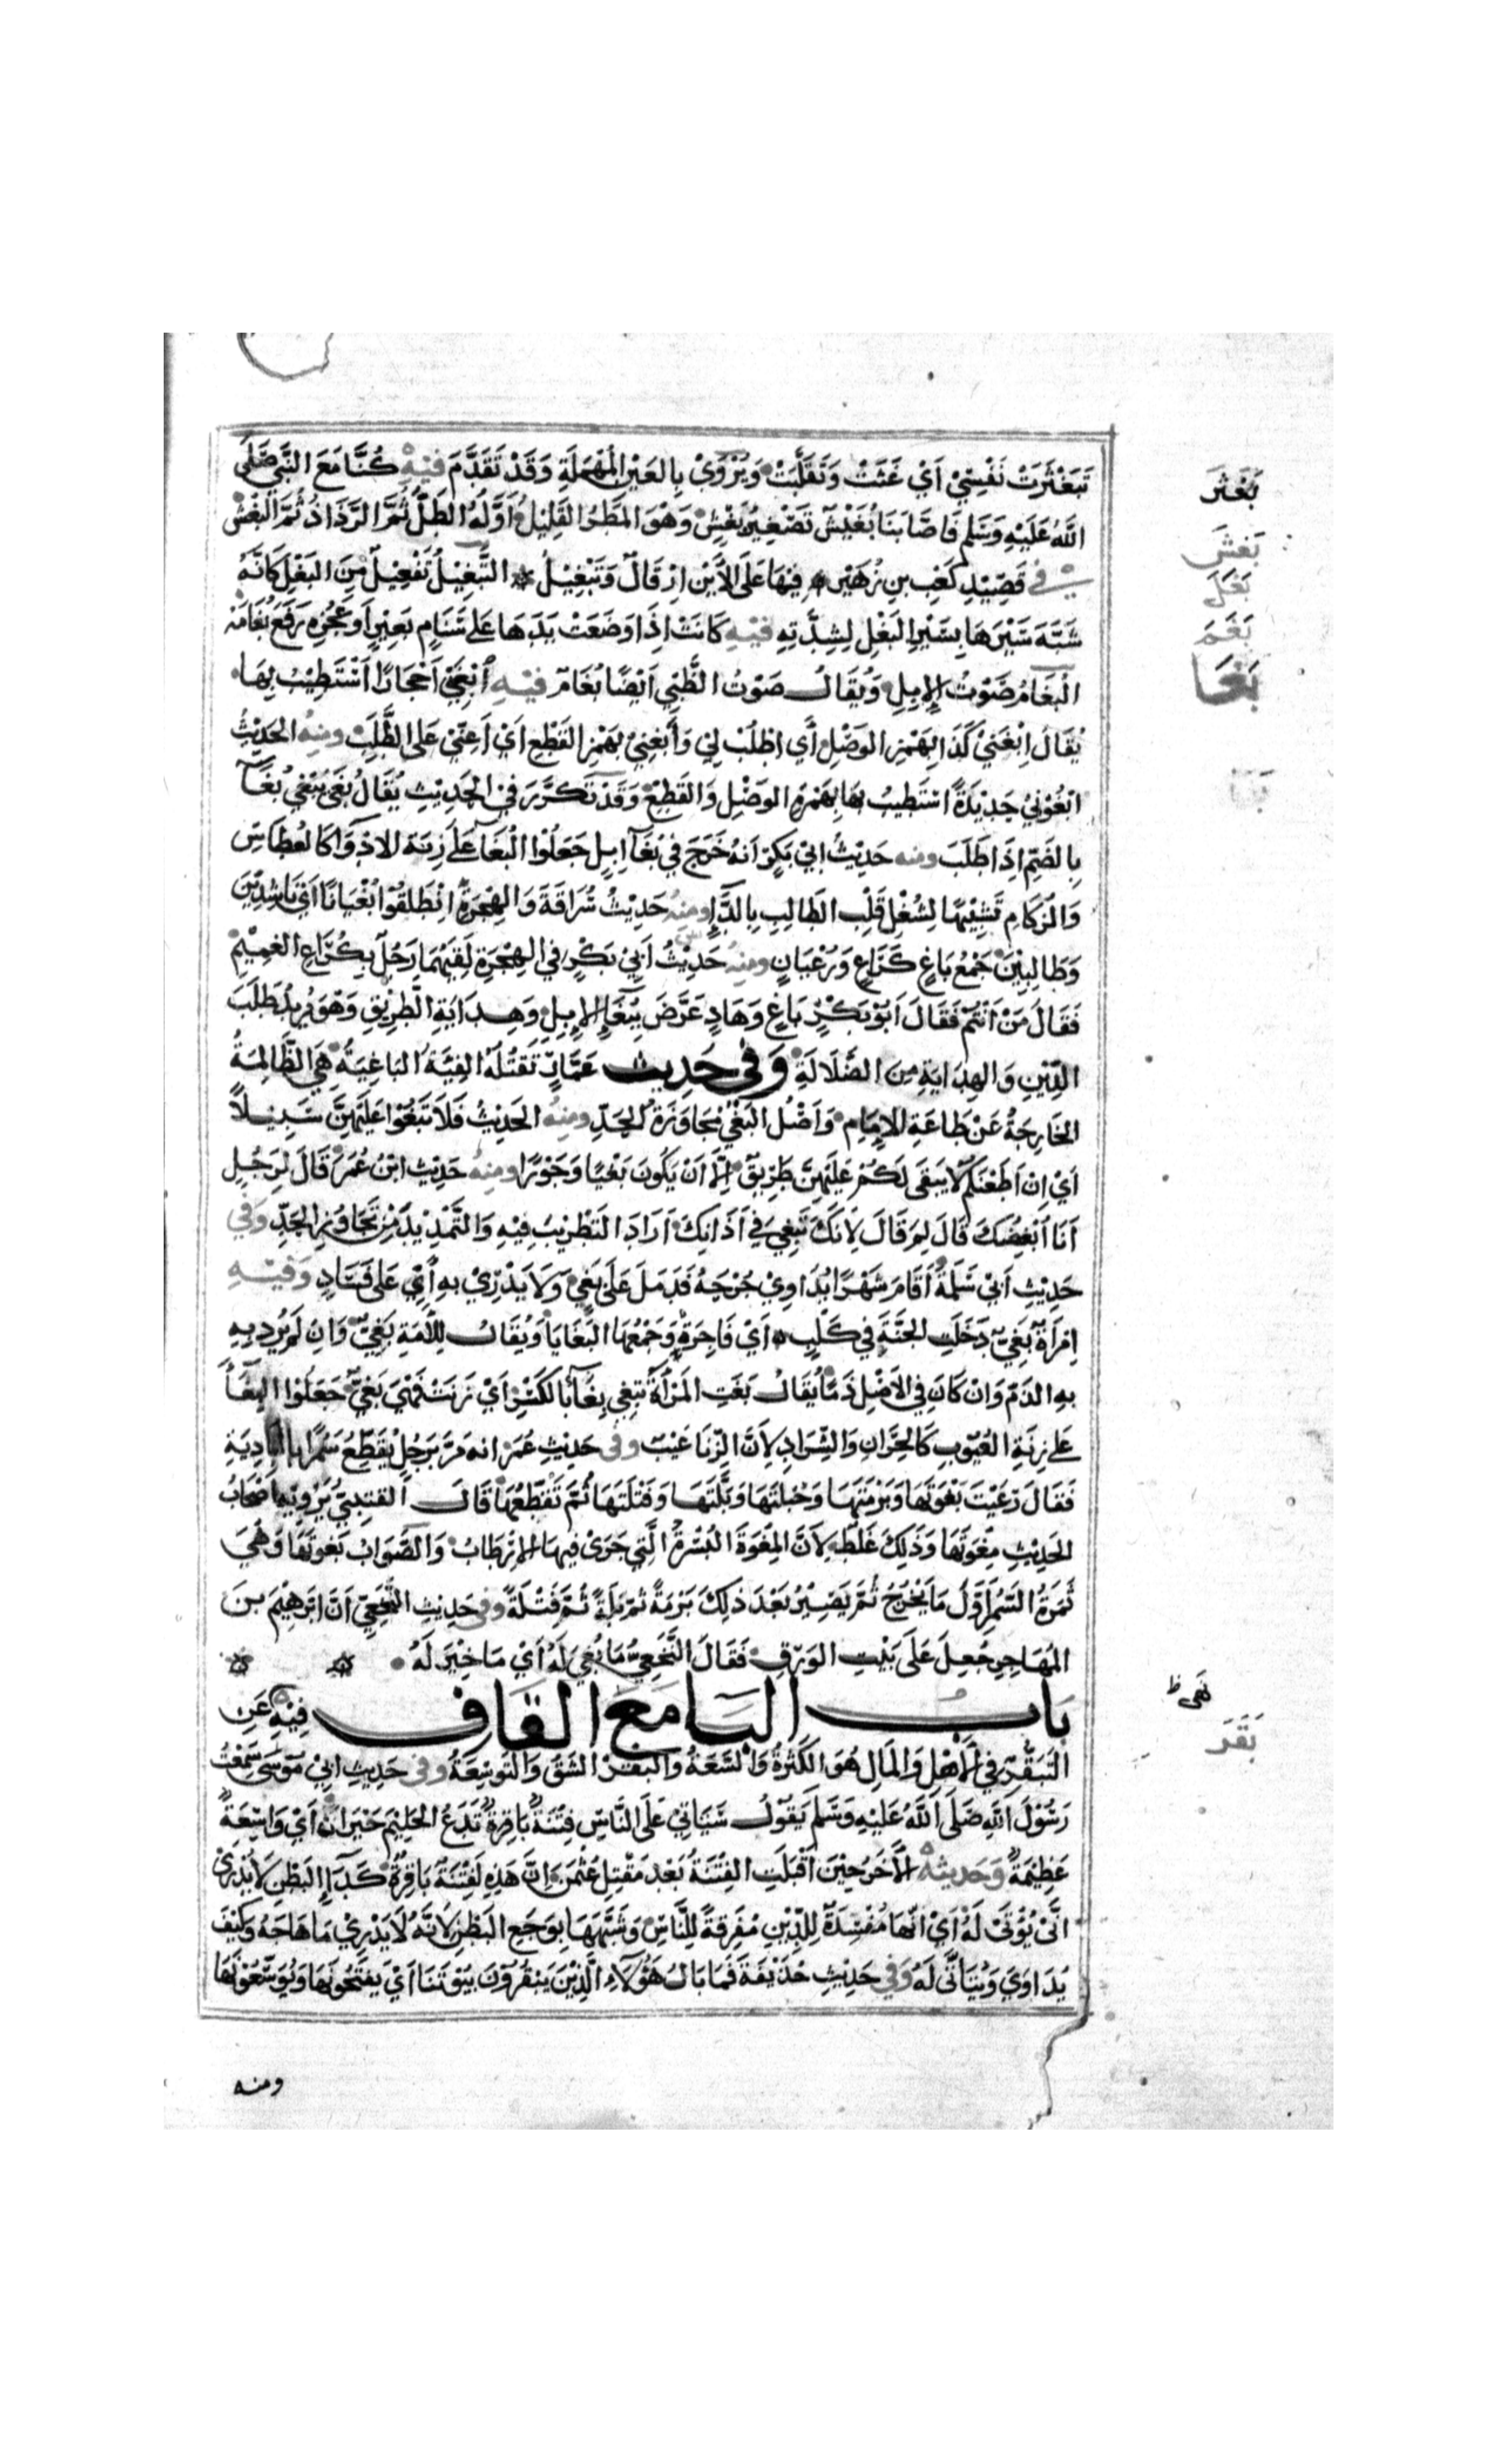 تبعثرت نفسي اي غثت وتقلبت ويروى بالعين المهملة وقد تقدم فيه كنا مع النبي صلى
الله عليه وسلم فاصابنا بغيش تصغير بغش وهو المطر القليل اوله الطل ثم الرذاذ ثم البغش
في قصيد كعب بن زهير فيها على الاين ارقال وتبغيل التبغيل تفعيل من البغل كانه
شبه سيرها بسير البغل لشدته فيه كانت اذا وضعت يدها على سنام بعير او عجزه رفع بغامه
البغام صوت الابل ويقال صوت الظبي ايضا بغام فيه ابغني احجارا استطيب بها
يقال ابغني كذا بهمز الوصل أي اطلب لي وأبغني بهمز القطع اي اعني على الطلب ومنه الحديث
ابغوني حديدة استطيب بها بهمزة الوصل والقطع وقد تكرر في الحديث يقال بغى يبغي بغآ
بالضم اذا طلب ومنه حديث ابي بكر انه خرج في بغآ ابل جعلوا البغا على زنة الادوا كالعطاس
والزكام تشبيها لشغل قلب الطالب بالدا ومنه حديث سراقة والهجرة انطلقوا بغيانا اي ناشدين
وطالبين جمع باغ كراع ورعيان ومنه حديث ابي بكر في الهجرة لقيهما رجل بكراع الغميم
فقال من انتم فقال ابو بكر باغ وهاد عرض ببغا الابل وهداية الطريق وهو يريد طلب
الدين والهداية من الضلالة وفى حديث عمار تقتله الفية الباغية هي الظالمة
الخارجة عن طاعة الامام واصل البغي مجاوزة الحد ومنه الحديث فلا تبغوا عليهن سبيلا
اي ان اطعنكم لا يبقى لكم عليهن طريق الا ان يكون بغيا وجورا ومنه حديث ابن عمر قال لرجل
انا ابغضك قال لم قال لانك تبغي في اذانك اراد التطريب فيه والتمديد من تجاوز الحد وفي
حديث ابي سلمة اقام شهرا يداوي جرحه فدمل على بغي ولا يدري به أي على فساد وفيه
امراة بغي دخلت الجنة في كلب اي فاجرة وجمعها البغايا ويقال للامة بغي وان لم يرد به
به الذم وان كان في الاصل ذما يقال بغت المرأة تبغي بغآ بالكسر اي زنت فهي بغي جعلوا البغآ
على زنة العيوب كالحران والشراد لان الزنا عيب وفى حديث عمر انه مر برجل يقطع سمرا بالبادية
فقال رعيت بغوتها وبرمتها وحبلتها وبلتها وفتلتها ثم تقطعها قال القتيبي يرويه اصحاب
الحديث مغوتها وذلك غلط لان المغوة البسرة التي جرى فيها الارطاب والصواب بغوتها وهي
ثمرة السمر اول ما يخرج ثم يصير بعد ذلك برمة ثم بلة ثم فتلة وفى حديث النخعي ان ابرهيم بن
المهاجر جعل على بيت الورق فقال النخعي ما بغي له اي ما خير له
باب البا مع القاف فيه نهى عن
التبقر في الاهل والمال هو الكثرة والسعة والبقر الشق والتوسعة وفى حديث ابي موسى سمعت
رسول الله صلى الله عليه وسلم يقول سياتي على الناس فتنة باقرة تدع الحليم حيران اي واسعة
عظيمة وحديثه الآخر حين اقبلت الفتنة بعد مقتل عثمن ان هذه لفتنة باقرة كدآء البطن لا يدرى
انى يؤتى له اي انها مفسدة للدين مفرقة للناس وشبهها بوجع البطن لانه لا يدري ما هاجه وكيف
يداوي ويتاتى له وفي حديث حذيفة فما بال هؤلاء الذين يبقرون بيوتنا اي يفتحونها ويوسعونها
ومنه
بغثر
بغش
بغل
بغم
بغا
نهى ظ
بقر